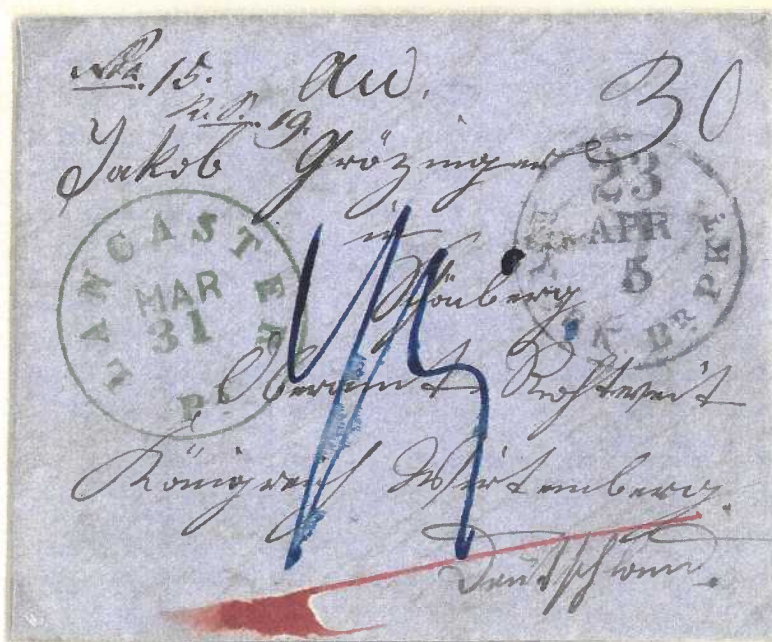 No. 15.
An.
30
N. S. 19.
Jakob Grözinger
in
Schönberg
Oberamt Rohtweit
Königreich Wirtemberg.
Deutschland.
45
LANCASTER
MAR
31
Pa.
23
APR
5
BR PKT